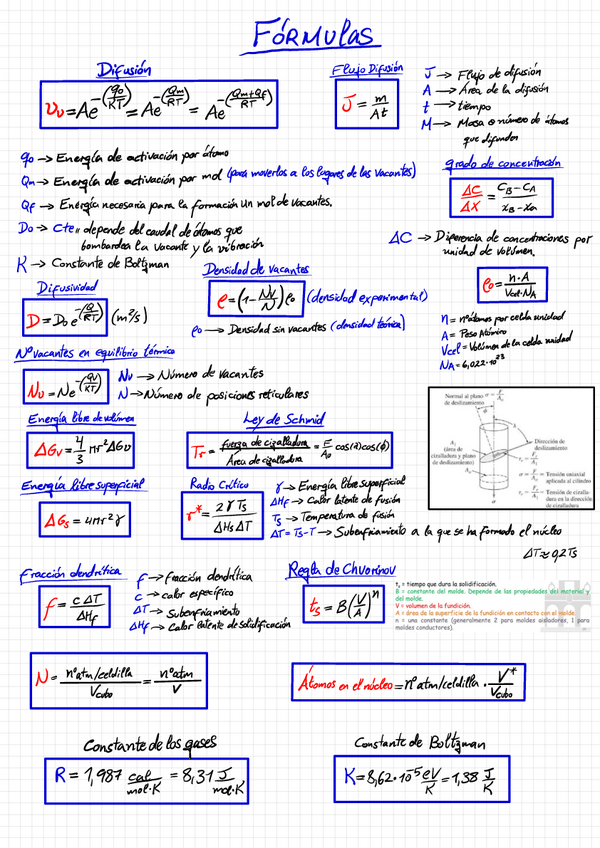 FÓRMULAS
Difusión
νv = Ae^-(q0/KT) = Ae^-(Qm/RT) = Ae^-(Qm+Qf/RT)
Flujo Difusión
J = m/At
J → Flujo de difusión
A → Área de la difusión
t → tiempo
M → Masa o número de átomos
que difunden
q0 → Energía de activación por átomo
Qm → Energía de activación por mol (para moverlos a los lugares de las vacantes)
Qf → Energía necesaria para la formación un mol de vacantes.
Do → Cte, depende del caudal de átomos que
bombardea la vacante y la vibración
K → Constante de Boltzman
grado de concentración
ΔC/ΔX = CB-CA/xB-xA
ΔC → Diferencia de concentraciones por
unidad de volumen.
Difusividad
D = Do e^-(Q/RT) (m²/s)
Densidad de vacantes
ρ = (1 - Nv/N) ρo (densidad experimental)
ρo → Densidad sin vacantes (densidad teórica)
ρo = n·A/Vcel·NA
n = nº átomos por celda unidad
A = Peso Atómico
Vcel = Volumen de la celda unidad
NA = 6,022·10^23
Nº vacantes en equilibrio térmico
Nv = Ne^-(Qv/KT)
Nv → Número de vacantes
N → Número de posiciones reticulares
Energía libre de volúmen
ΔGv = 4/3 πr²ΔGv
Ley de Schmid
Tr = fuerza de cizalladura/Área de cizalladura = F/Ao cos(λ)cos(ϕ)
Normal al plano
de deslizamiento
σ = F/Ao
A1
(área de
cizalladura y plano
de deslizamiento)
Dirección de
deslizamiento
σ = F/Ao = Tensión uniaxial
aplicada al cilindro
τr = Fr/A1 = Tensión de cizalla-
dura en la dirección
de cizalladura
Energía libre superficial
ΔGs = 4πr²γ
Radio Crítico
r* = 2γTs/ΔHsΔT
γ → Energía libre superficial
ΔHf → Calor latente de fusión
Ts → Temperatura de fusión
ΔT = Ts-T → Subenfriamiento a la que se ha formado el núcleo
ΔT ≈ 0,2Ts
Fracción dendrítica
f = c ΔT/ΔHf
f → fracción dendrítica
c → calor específico
ΔT → Subenfriamiento
ΔHf → Calor latente de solidificación
Regla de Chvorinov
ts = B(V/A)^n
ts = tiempo que dura la solidificación.
B = constante del molde. Depende de las propiedades del material y
del molde.
V = volumen de la fundición.
A = área de la superficie de la fundición en contacto con el molde.
n = una constante (generalmente 2 para moldes aisladores, 1 para
moldes conductores).
N = nº atm/celdilla/Vcubo = nº atm/V
Átomos en el núcleo = nº atm/celdilla · V*/Vcubo
Constante de los gases
R = 1,987 cal/mol·K = 8,31 J/mol·K
Constante de Boltzman
K = 8,62·10^-5 eV/K = 1,38 J/K